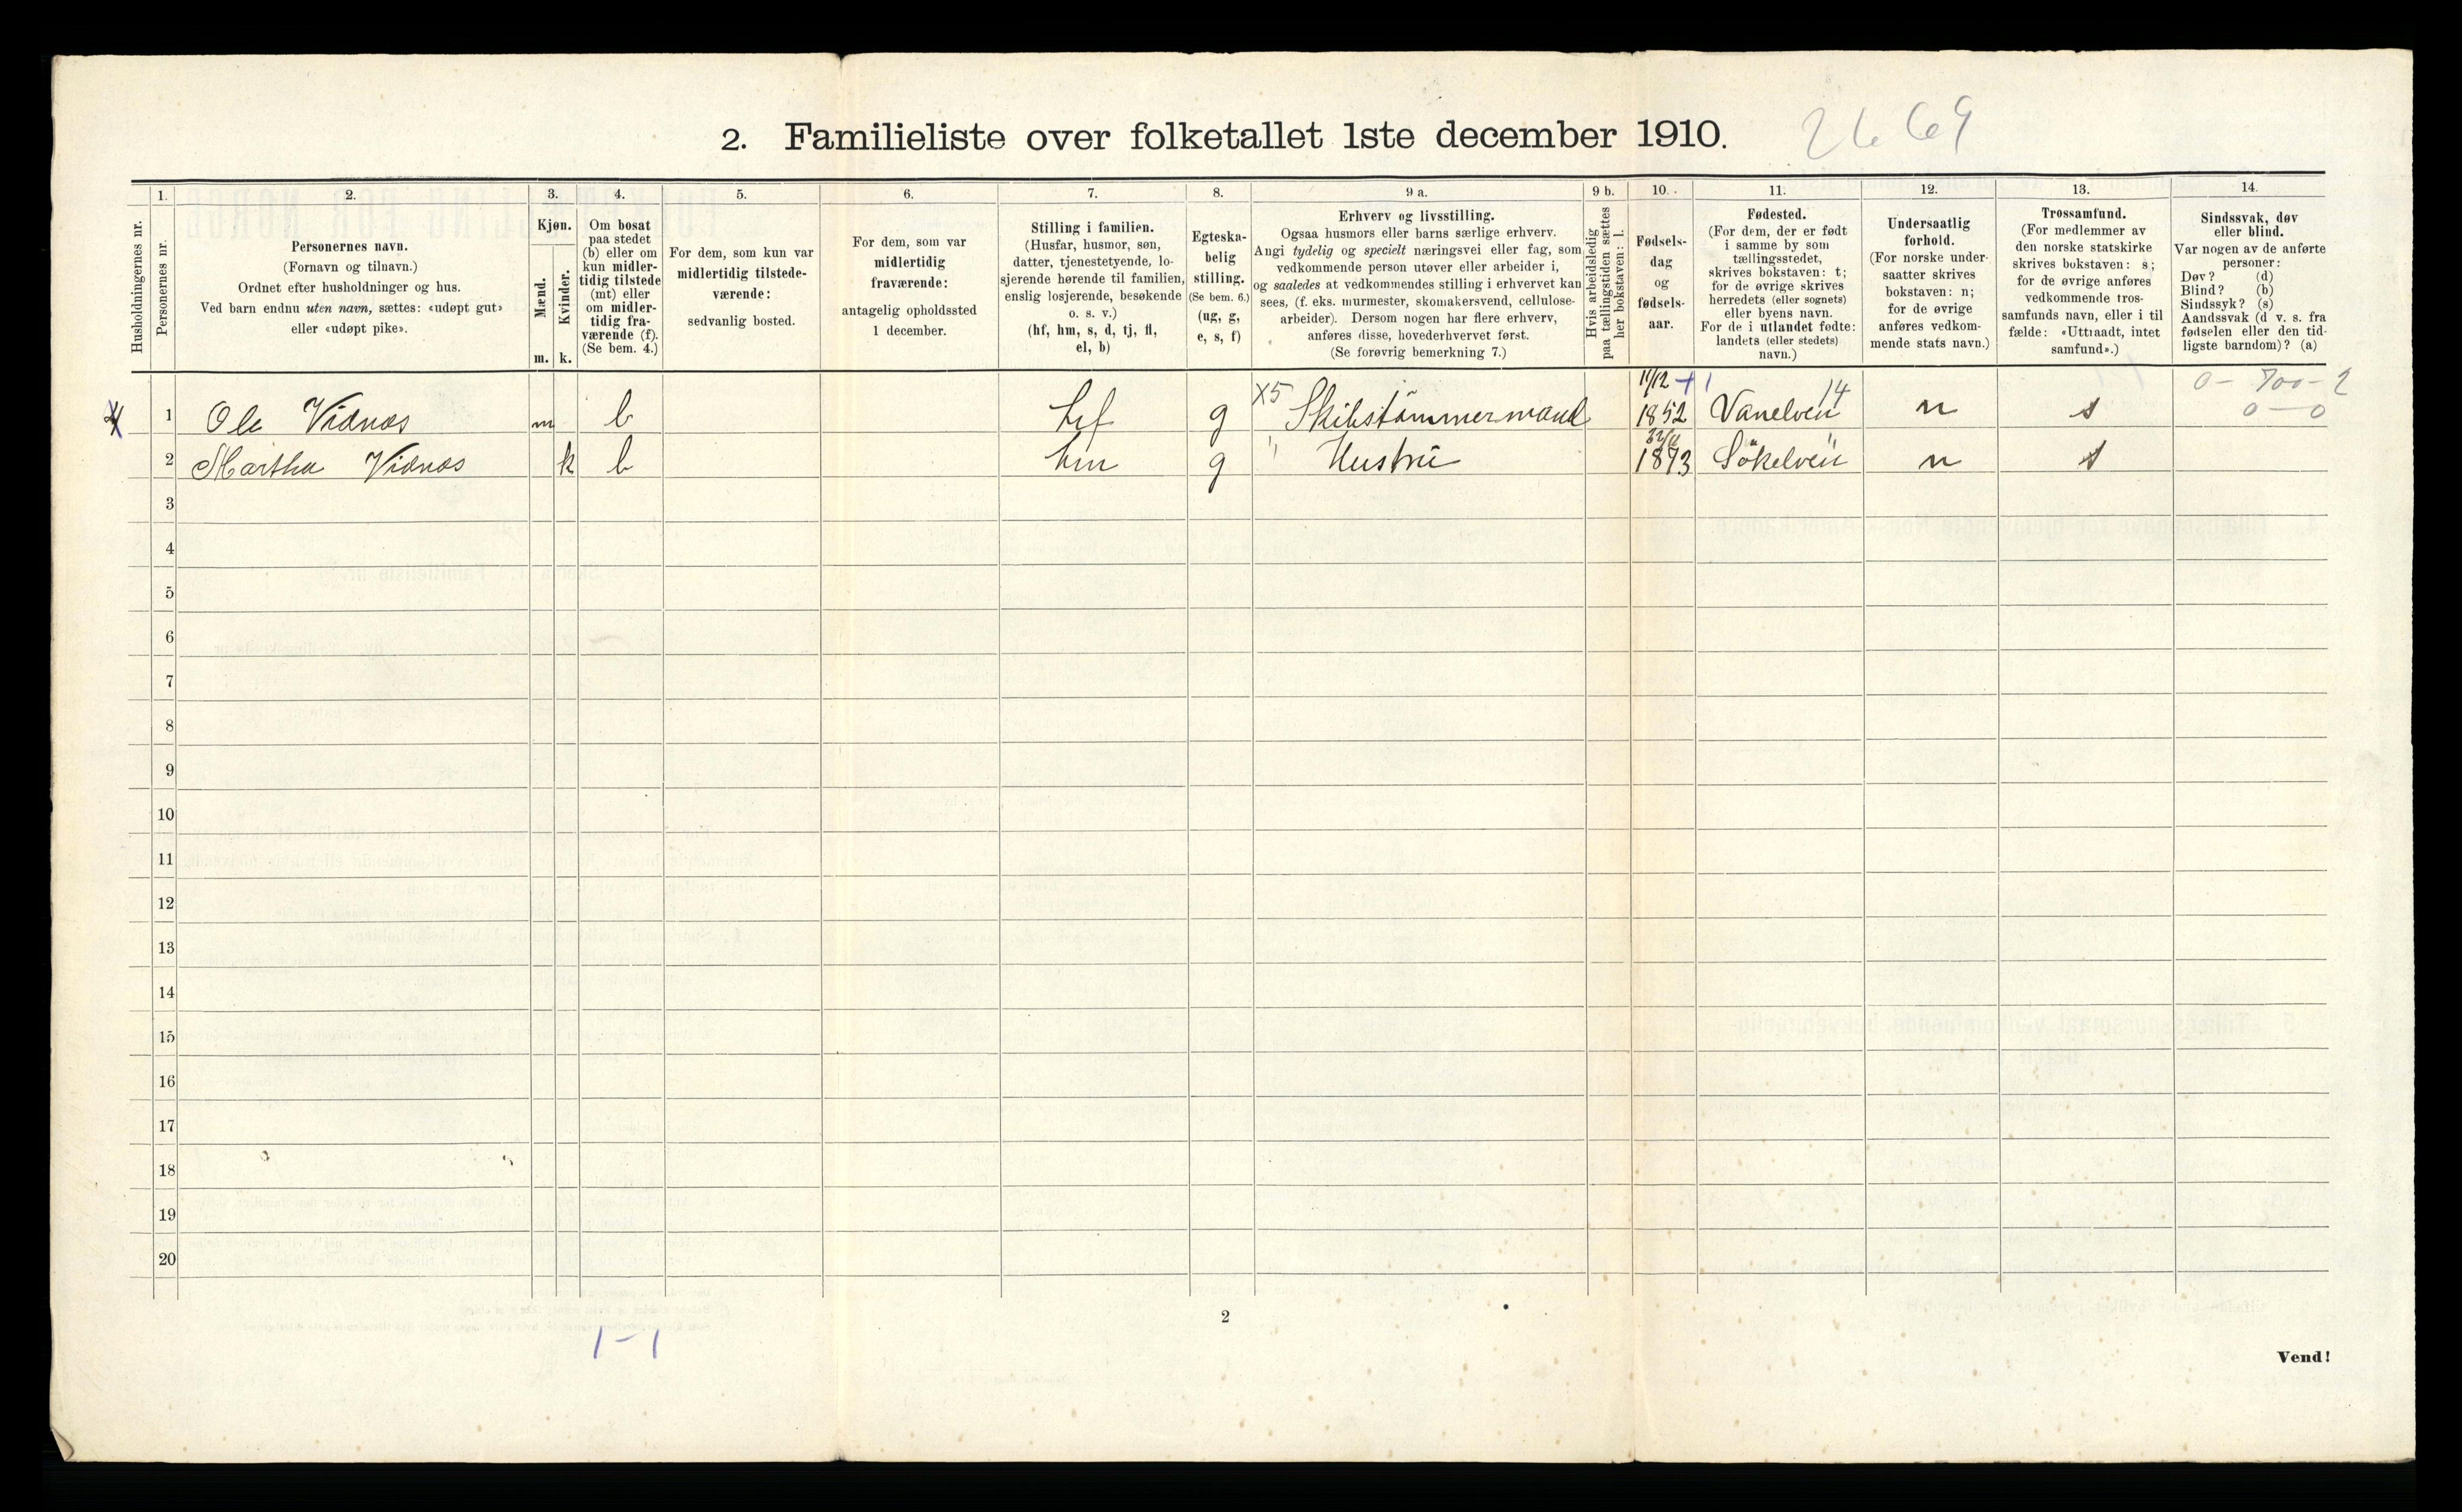 2. Familieliste over folketallet 1ste december 1910.
2669
1. 2. 3. 4. 5. 6. 7. 8. 9 a. 9 b. 10. 11. 12. 13. 14.
Husholdningernes nr.
Personernes nr.
Personernes navn.
(Fornavn og tilnavn.)
Ordnet efter husholdninger og hus.
Ved barn endnu uten navn, sættes: «udøpt gut»
eller «udøpt pike».
Kjøn.
Mænd.
Kvinder.
m. k.
Om bosat
paa stedet
(b) eller om
kun midler-
tidig tilstede
(mt) eller
om midler-
tidig fra-
værende (f).
(Se bem. 4.)
For dem, som kun var
midlertidig tilstede-
værende:
sedvanlig bosted.
For dem, som var
midlertidig
fraværende:
antagelig opholdssted
1 december.
Stilling i familien.
(Husfar, husmor, søn,
datter, tjenestetyende, lo-
sjerende hørende til familien,
enslig losjerende, besøkende
o. s. v.)
(hf, hm, s, d, tj, fl,
el, b)
Egteska-
belig
stilling.
(Se bem. 6.)
(ug, g,
e, s, f)
Erhverv og livsstilling.
Ogsaa husmors eller barns særlige erhverv.
Angi tydelig og specielt næringsvei eller fag, som
vedkommende person utøver eller arbeider i,
og saaledes at vedkommendes stilling i erhvervet kan
sees, (f. eks. murmester, skomakersvend, cellulose-
arbeider). Dersom nogen har flere erhverv,
anføres disse, hovederhvervet først.
(Se forøvrig bemerkning 7.)
Hvis arbeidsledig
paa tællingstiden sættes
her bokstaven: l.
Fødsels-
dag
og
fødsels-
aar.
Fødested.
(For dem, der er født
i samme by som
tællingsstedet,
skrives bokstaven: t;
for de øvrige skrives
herredets (eller sognets)
eller byens navn.
For de i utlandet fødte:
landets (eller stedets)
navn.)
Undersaatlig
forhold.
(For norske under-
saatter skrives
bokstaven: n;
for de øvrige
anføres vedkom-
mende stats navn.)
Trossamfund.
(For medlemmer av
den norske statskirke
skrives bokstaven: s;
for de øvrige anføres
vedkommende tros-
samfunds navn, eller i til
fælde: «Uttraadt, intet
samfund».)
Sindssvak, døv
eller blind.
Var nogen av de anførte
personer:
Døv? (d)
Blind? (b)
Sindssyk? (s)
Aandssvak (d v. s. fra
fødselen eller den tid-
ligste barndom)? (a)
11/12 14 0 - 700 - 2
1 Ole Vidnos m b hf g X5 Skibstömmermand 1852 Vanelven n s 0 - 0
2 Martha Vidnos k b hm g " Hustru 1873 Sökelven " n s
3
4
5
6
7
8
9
10
11
12
13
14
15
16
17
18
19
20
2
1 - 1
Vend!